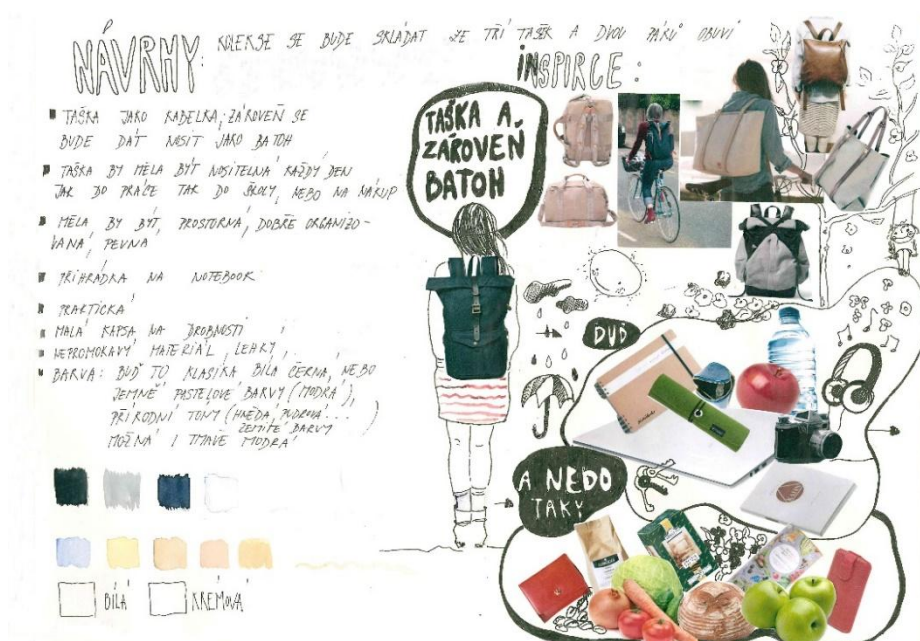 NÁVRHY: KOLEKSE SE BUDE SKLÁDAT ZE TŘÍ TAŠEK A DVOU PÁRŮ OBUVI
INSPIRCE:
TAŠKA JAKO KABELKA, ZÁROVEŇ SE
BUDE DÁT NOSIT JAKO BATOH
TAŠKA BY MĚLA BÝT NOSITELNÁ KAŽDÝ DEN
JAK DO PRÁCE TAK DO ŠKOLY, NEBO NA NÁKUP
MĚLA BY BÝT, PROSTORNÁ, DOBŘE ORGANIZO-
VANÁ, PEVNÁ
PŘIHRÁDKA NA NOTEBOOK
PRAKTICKÁ
MALÁ KAPSA NA DROBNOSTI
NEPROMOKAVÝ MATERIÁL, LEHKÝ,
BARVA: BUĎ TO KLASIKA BÍLÁ ČERNÁ, NEBO
JEMNĚ PASTELOVÉ BARVY (MODRÁ),
PŘÍRODNÍ TÓNY (HNĚDÁ, PUDROVÁ...)
ZEMITÉ BARVY
MOŽNÁ I TMAVĚ MODRÁ
BÍLÁ
KRÉMOVÁ
TAŠKA A
ZÁROVEŇ
BATOH
BUĎ
A NEBO
TAKY